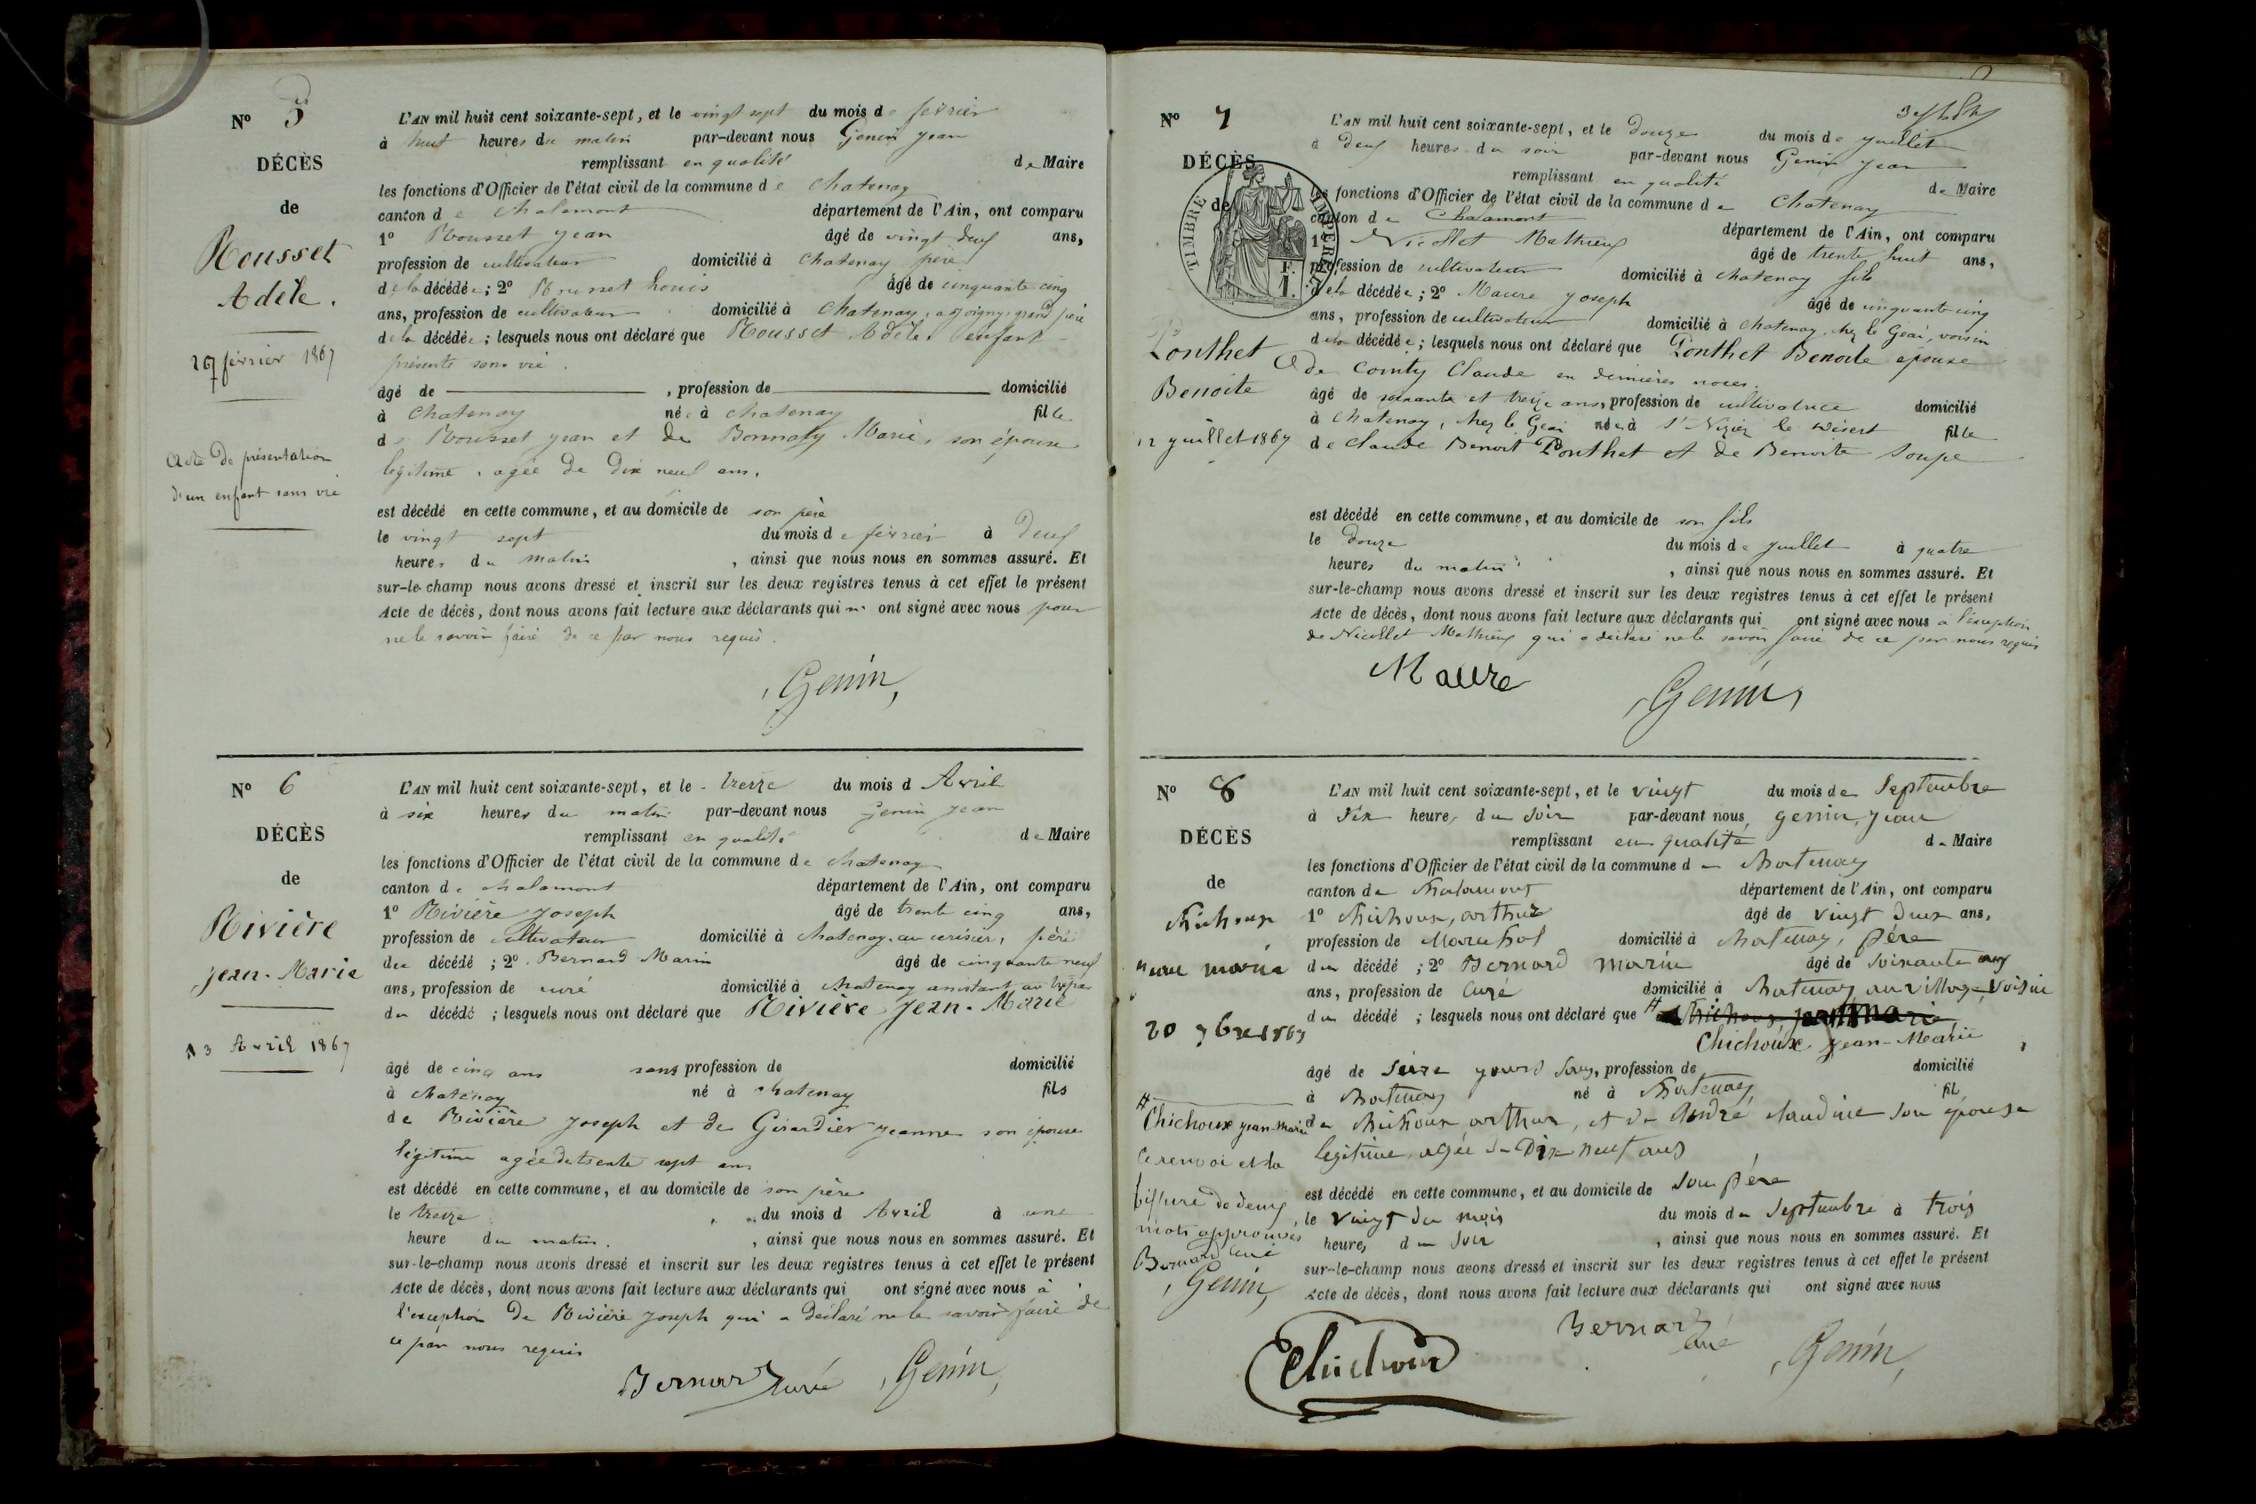 Nº 5
DÉCÈS
de
Rousset
Adèle.
27 février 1867
Acte de présentation
d'un enfant sans vie
L'AN mil huit cent soixante-sept, et le vingt sept du mois de février
à huit heures du matin par-devant nous Genin Jean
remplissant en qualité de Maire
les fonctions d'Officier de l'état civil de la commune de Chatenay
canton de Chalamont département de l'Ain, ont comparu
1º Rousset Jean âgé de vingt deux ans,
profession de cultivateur domicilié à Chatenay père
de la décédée; 2º Rousset Louis âgé de cinquante cinq
ans, profession de cultivateur domicilié à Chatenay, grand père
de la décédée; lesquels nous ont déclaré que Rousset Adèle, enfant
présenté sans vie.
âgé de , profession de domicilié
à Chatenay née à Chatenay fille
de Rousset Jean et de Bonnaty Marie, son épouse
légitime, agée de dix neuf ans.
est décédé en cette commune, et au domicile de son père
le vingt sept du mois de février à deux
heures du matin , ainsi que nous nous en sommes assuré. Et
sur-le-champ nous avons dressé et inscrit sur les deux registres tenus à cet effet le présent
Acte de décès, dont nous avons fait lecture aux déclarants qui n' ont signé avec nous pour
ne le savoir faire de ce par nous requis.
Genin
Nº 6
DÉCÈS
de
Rivière
Jean-Marie
13 Avril 1867
L'AN mil huit cent soixante-sept, et le treize du mois d Avril
à six heures du matin par-devant nous Genin Jean
remplissant en qualité de Maire
les fonctions d'Officier de l'état civil de la commune de Chatenay
canton de Chalamont département de l'Ain, ont comparu
1º Rivière Joseph âgé de trente cinq ans,
profession de cultivateur domicilié à Chatenay, au cerisier, père
du décédé ; 2º Bernard Marin âgé de cinquante neuf
ans, profession de curé domicilié à Chatenay assistant au trépas
du décédé ; lesquels nous ont déclaré que Rivière Jean-Marie
âgé de cinq ans sans profession de domicilié
à Chatenay né à Chatenay fils
de Rivière Joseph et de Girardier Jeanne son épouse
légitime agée de trente sept ans
est décédé en cette commune, et au domicile de son père
le treize du mois d Avril à une
heure du matin. , ainsi que nous nous en sommes assuré. Et
sur-le-champ nous avons dressé et inscrit sur les deux registres tenus à cet effet le présent
Acte de décès, dont nous avons fait lecture aux déclarants qui ont signé avec nous à
l'exception de Rivière Joseph qui a déclaré ne le savoir faire de
ce par nous requis
Bernard curé Genin
Nº 7
DÉCÈS
de
TIMBRE IMPÉRIAL
Ponthet
Benoite
12 juillet 1867
L'AN mil huit cent soixante-sept, et le douze du mois de juillet
à deux heures du soir par-devant nous Genin Jean
remplissant en qualité de Maire
les fonctions d'Officier de l'état civil de la commune de Chatenay
canton de Chalamont département de l'Ain, ont comparu
1º Nicollet Mathieux âgé de trente huit ans,
profession de cultivateur domicilié à Chatenay fils
de la décédée; 2º Maure Joseph âgé de cinquante cinq
ans, profession de cultivateur domicilié à Chatenay, chez le Geai, voisin
de la décédée; lesquels nous ont déclaré que Ponthet Benoite epouse
de Cointy Claude en dernières noces.
âgé de soixante et treize ans, profession de cultivatrice domicilié
à Chatenay, chez le Geai née à St Nizier le Désert fille
de Claude Benoit Ponthet et de Benoite Soupe
est décédé en cette commune, et au domicile de son fils
le douze du mois de juillet à quatre
heures du matin , ainsi que nous nous en sommes assuré. Et
sur-le-champ nous avons dressé et inscrit sur les deux registres tenus à cet effet le présent
Acte de décès, dont nous avons fait lecture aux déclarants qui ont signé avec nous à l'exception
de Nicollet Mathieux qui a déclaré ne le savoir faire de ce par nous requis
Maure Genin
Nº 8
DÉCÈS
de
Chichoux
Jean marie
20 7bre 1867
# Chichoux Jean-Marie
Ce renvoi et la
biffure de deux
mots approuvés
Bernard curé
Genin
L'AN mil huit cent soixante-sept, et le vingt du mois de Septembre
à Six heures du Soir par-devant nous genin, Jean
remplissant en qualité de Maire
les fonctions d'Officier de l'état civil de la commune de Chatenay
canton de Chalamont département de l'Ain, ont comparu
1º Chichoux, arthur âgé de vingt deux ans,
profession de Marechal domicilié à Chatenay, Père
du décédé ; 2º Bernard Marin âgé de Soixante ans
ans, profession de Curé domicilié à Chatenay au village, Voisin
du décédé ; lesquels nous ont déclaré que # Chichoux jean marie
Chichoux Jean-Marie
âgé de Seize jours Sans, profession de domicilié
à Chatenay né à Chatenay fil
de Chichoux arthur, et de André claudine Son épouse
légitime, agée de Dix neuf ans
est décédé en cette commune, et au domicile de Son Père
le vingt du mois du mois de Septembre à trois
heures du Soir , ainsi que nous nous en sommes assuré. Et
sur-le-champ nous avons dressé et inscrit sur les deux registres tenus à cet effet le présent
Acte de décès, dont nous avons fait lecture aux déclarants qui ont signé avec nous
Chichoux Bernard curé Genin